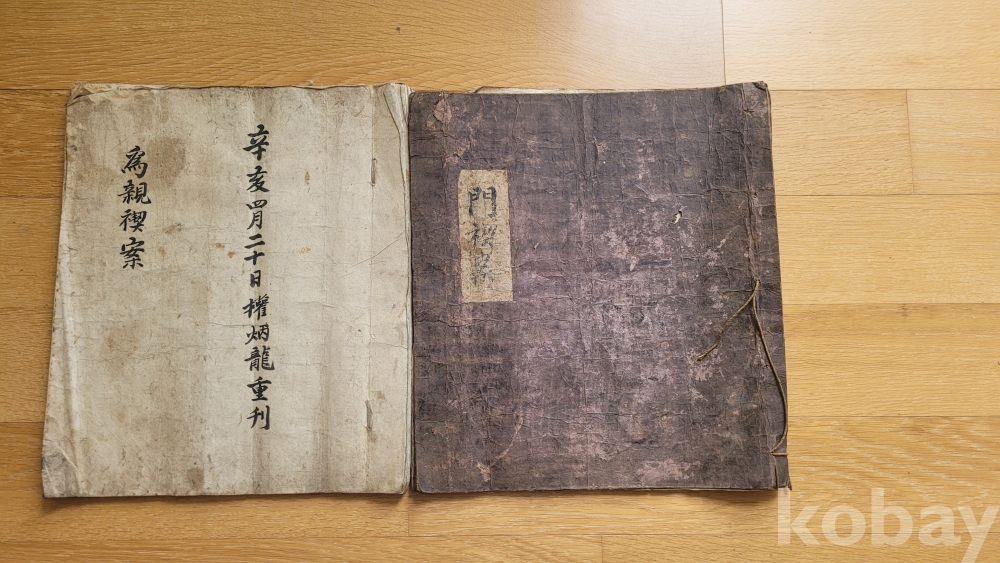 辛亥四月二十日權炳龍重刊
為親禊案
門禊案
kobay